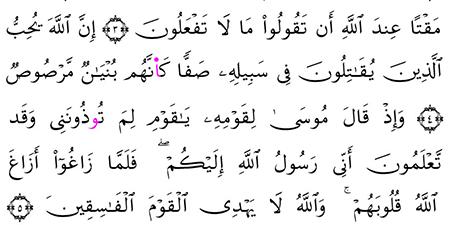 مَقْتًا عِندَ ٱللَّهِ أَن تَقُولُوا۟ مَا لَا تَفْعَلُونَ ۝٣ إِنَّ ٱللَّهَ يُحِبُّ
ٱلَّذِينَ يُقَـٰتِلُونَ فِى سَبِيلِهِۦ صَفًّا كَأَنَّهُم بُنْيَـٰنٌ مَّرْصُوصٌ
۝٤ وَإِذْ قَالَ مُوسَىٰ لِقَوْمِهِۦ يَـٰقَوْمِ لِمَ تُوذُونَنِى وَقَد
تَّعْلَمُونَ أَنِّى رَسُولُ ٱللَّهِ إِلَيْكُمْ ۖ فَلَمَّا زَاغُوٓا۟ أَزَاغَ
ٱللَّهُ قُلُوبَهُمْ ۚ وَٱللَّهُ لَا يَهْدِى ٱلْقَوْمَ ٱلْفَـٰسِقِينَ ۝٥